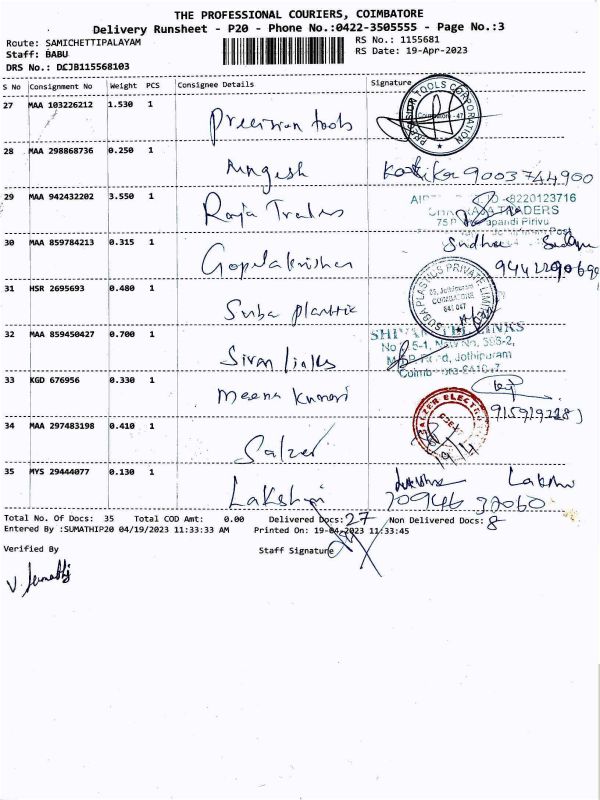 THE PROFESSIONAL COURIERS, COIMBATORE
Delivery Runsheet - P20 - Phone No.:0422-3505555 - Page No.:3
Route: SAMICHETTIPALAYAM RS No.: 1155681
Staff: BABU RS Date: 19-Apr-2023
DRS No.: DCJB115568103
S No Consignment No Weight PCS Consignee Details Signature
27 MAA 103226212 1.530 1
Precision tools
PRECISION TOOLS CORPORATION
28 MAA 298868736 0.250 1
Mngesh 9003744900
29 MAA 942432202 3.550 1
Raja Traders
8220123716
TRADERS
30 MAA 859784213 0.315 1
Gopalakrishnan
31 HSR 2695693 0.480 1
Suba plastic
SUBA PLASTICS PRIVATE LIMITED
COIMBATORE
641 047
32 MAA 859450427 0.700 1
Sivan links
LINKS
Jothipuram
33 KGD 676956 0.330 1
Meena Kumari
34 MAA 297483198 0.410 1
Salzer
SALZER
19/4
35 MYS 29444077 0.130 1
Lakshmi
Total No. Of Docs: 35 Total COD Amt: 0.00 Delivered Docs: 27 Non Delivered Docs: 8
Entered By :SUMATHIP20 04/19/2023 11:33:33 AM Printed On: 19-04-2023 11:33:45
Verified By Staff Signature